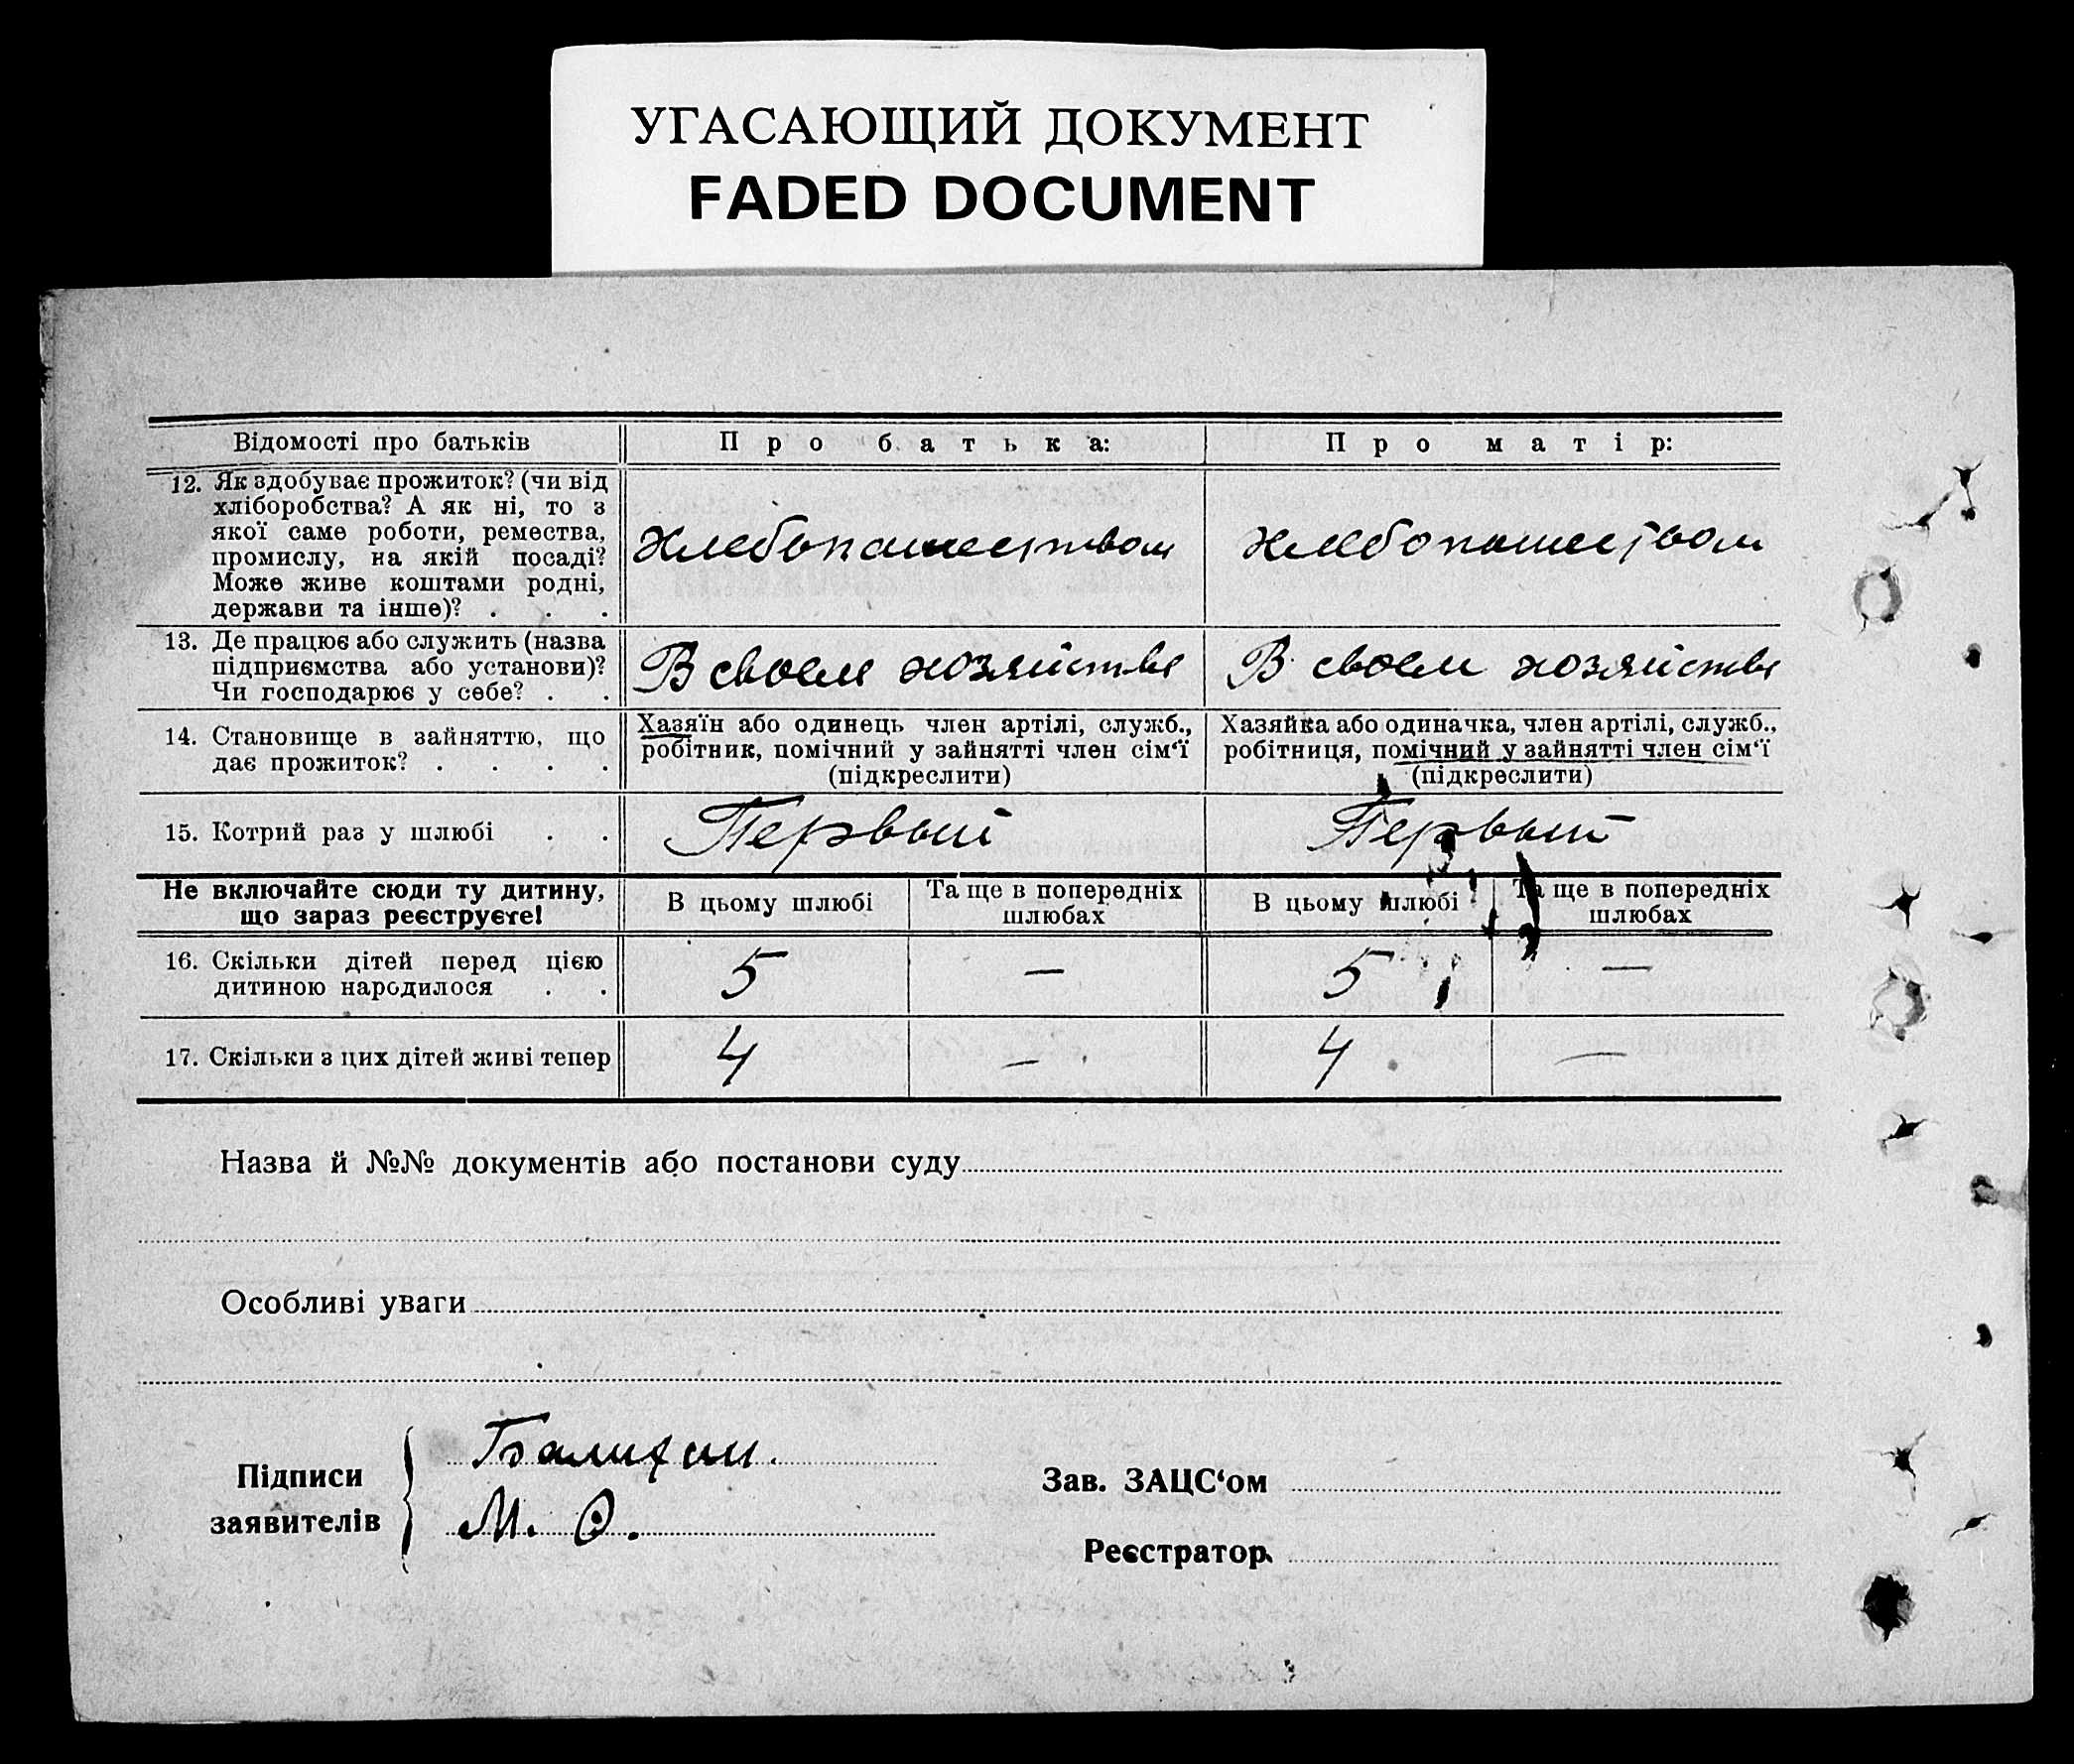 УГАСАЮЩИЙ ДОКУМЕНТ
FADED DOCUMENT
Відомості про батьків
Про батька:
Про матір:
12. Як здобуває прожиток? (чи від
хліборобства? А як ні, то з
якої саме роботи, ремества,
промислу, на якій посаді?
Може живе коштами родні,
держави та інше)? . . .
Хлебопашеством
Хлебопашеством
13. Де працює або служить (назва
підприємства або установи)?
Чи господарює у себе? . .
В своем хозяйстве
В своем хозяйстве
14. Становище в зайняттю, що
дає прожиток? . . . .
Хазяїн або одинець член артілі, служб.,
робітник, помічний у зайнятті член сім‘ї
(підкреслити)
Хазяйка або одиначка, член артілі, служб.,
робітниця, помічний у зайнятті член сім‘ї
(підкреслити)
15. Котрий раз у шлюбі . .
Первый
Первый
Не включайте сюди ту дитину,
що зараз реєструєте!
В цьому шлюбі
Та ще в попередніх
шлюбах
В цьому шлюбі
Та ще в попередніх
шлюбах
16. Скільки дітей перед цією
дитиною народилося . .
5
—
5
—
17. Скільки з цих дітей живі тепер
4
—
4
—
Назва й №№ документів або постанови суду
Особливі уваги
Підписи
заявителів
М. О.
Зав. ЗАЦС‘ом
Реєстратор